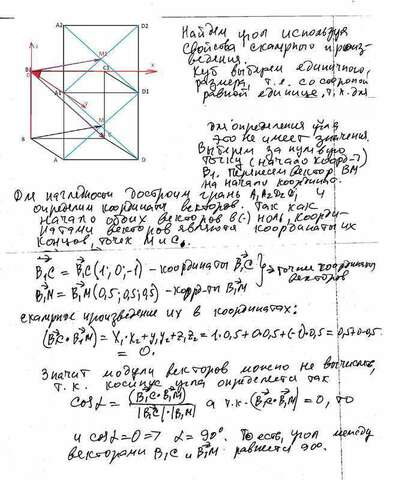 A2 D2
M2
B1 C1 x
A1 D1
B M C
A D
Найдём угол используя
свойства скалярного произ-
ведения.
Куб выберем единичного,
размера, т.е. со стороной
равной единице, т.к. для
для определения угла
это не имеет значения.
Выберем за нулевую
точку (начало коорд-т)
B₁. Перенесём вектор BM
на начало координат.
Для наглядности достроим грань A₁A₂D₂D₁ и
определим координаты векторов. Так как
начало обоих векторов в (·) ноль, коорди-
натами векторов являются координаты их
концов, точек M и C.
B₁C = B₁C (1; 0; -1) - координаты B₁C
B₁M = B₁M (0,5; 0,5; 0,5) - коорд-ты B₁M } точнее координаты векторов
скалярное произведение их в координатах:
(B₁C · B₁M) = x₁·x₂ + y₁y₂ + z₁z₂ = 1·0,5 + 0·0,5 + (-1)·0,5 = 0,5+0-0,5
= 0.
Значит модули векторов можно не вычислять,
т.к. косинус угла определяется так
cosα = (B₁C·B₁M) / |B₁C|·|B₁M| а т.к. (B₁C·B₁M) = 0, то
и cosα = 0 => α = 90°. То есть, угол между
векторами B₁C и B₁M равняется 90°.